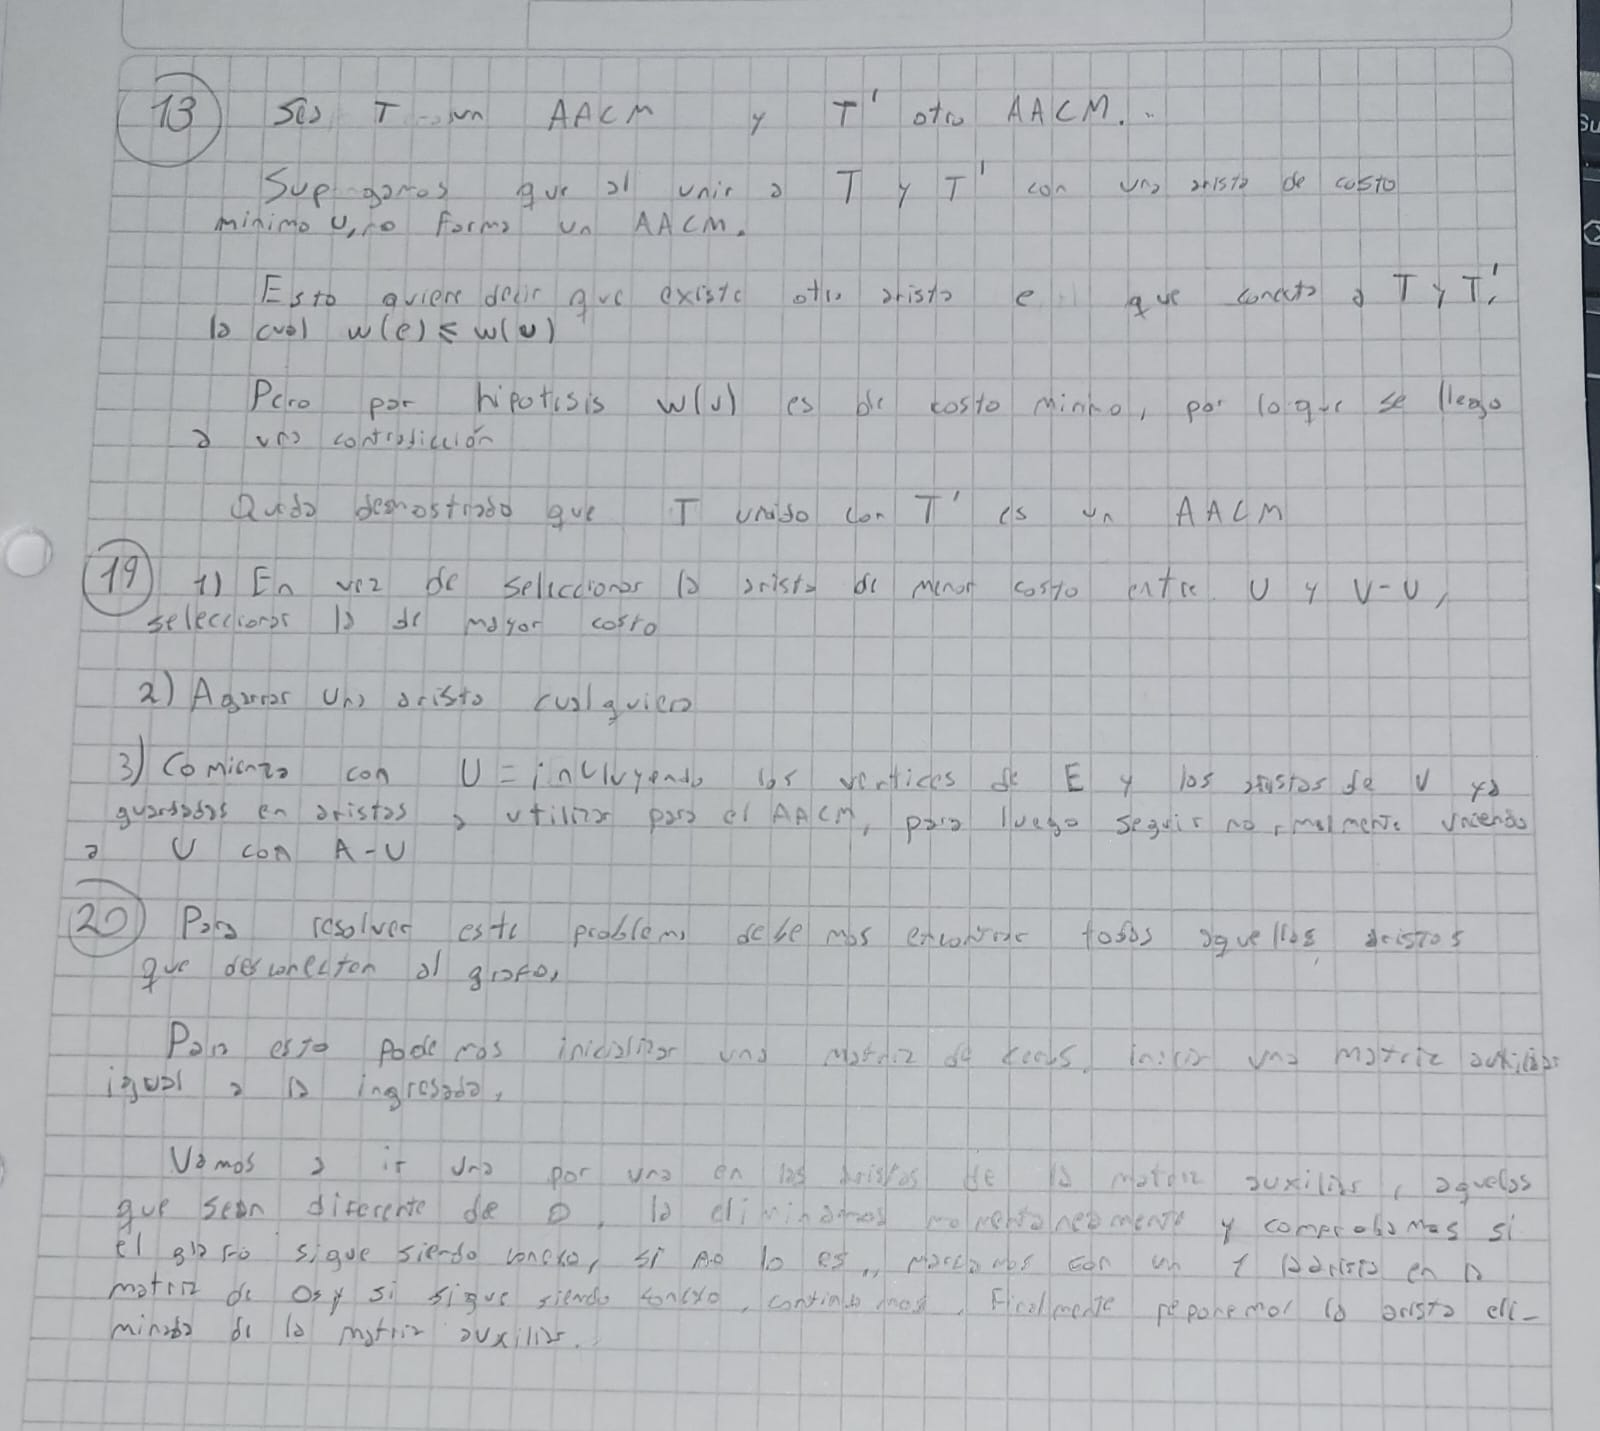 13 Sea T un AACM y T' otro AACM.
Supongamos que al unir a T y T' con una arista de costo
minimo U, no forma un AACM.
Esto quiere decir que existe otra arista e que conecta a T y T',
la cual w(e) ≤ w(u)
Pero por hipotesis w(u) es de costo minimo, por lo que se llego
a una contradicción
Queda demostrado que T unido con T' es un AACM
19 1) En vez de seleccionar la arista de menor costo entre U y V-U,
seleccionar la de mayor costo
2) Agarrar una arista cualquiera
3) Comienza con U = incluyendo los vertices de E y los aristas de U ya
guardadas en aristas a utilizar para el AACM, para luego seguir normalmente uniendo
a U con A-U
20 Para resolver este problema debemos encontrar todos aquellas aristas
que desconecten al grafo,
Para esto podemos inicializar una matriz de ceros, iniciar una matriz auxiliar
igual a la ingresada,
Vamos a ir una por una en las aristas de la matriz auxiliar, aquelas
que sean diferente de 0, la eliminamos momentaneamente y comprobamos si
el grafo sigue siendo conexo, si no lo es, marcamos con un 1 la arista en la
matriz de 0s y si sigue siendo conexo, continuamos. Finalmente reponemos la arista eli-
minada de la matriz auxiliar.